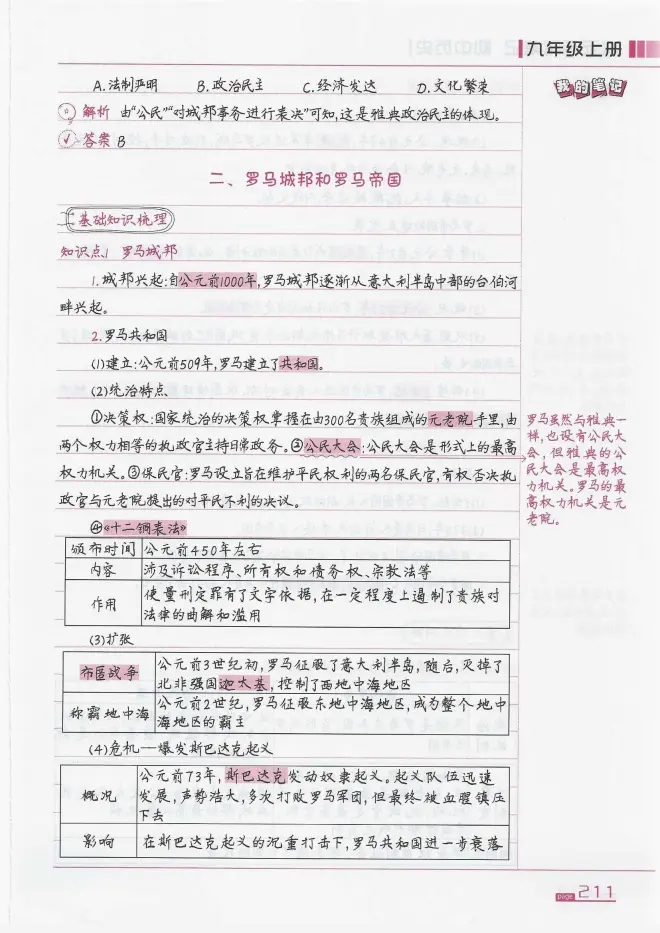 九年级上册
A.法制严明 B.政治民主 C.经济发达 D.文化繁荣
我的笔记
解析 由“公民”“对城邦事务进行表决”可知,这是雅典政治民主的体现。
答案 B
二、罗马城邦和罗马帝国
基础知识梳理
知识点1 罗马城邦
1.城邦兴起:自公元前1000年,罗马城邦逐渐从意大利半岛中部的台伯河
畔兴起。
2.罗马共和国
(1)建立:公元前509年,罗马建立了共和国。
(2)统治特点
①决策权:国家统治的决策权掌握在由300名贵族组成的元老院手里,由
两个权力相等的执政官主持日常政务。②公民大会:公民大会是形式上的最高
权力机关。③保民官:罗马设立旨在维护平民权利的两名保民官,有权否决执
政官与元老院提出的对平民不利的决议。
罗马虽然与雅典一
样,也设有公民大
会,但雅典的公
民大会是最高权
力机关。罗马的最
高权力机关是元
老院。
④《十二铜表法》
颁布时间 公元前450年左右
内容 涉及诉讼程序、所有权和债务权、宗教法等
作用 使量刑定罪有了文字依据,在一定程度上遏制了贵族对
法律的曲解和滥用
(3)扩张
布匿战争 公元前3世纪初,罗马征服了意大利半岛,随后,灭掉了
北非强国迦太基,控制了西地中海地区
称霸地中海 公元前2世纪,罗马征服东地中海地区,成为整个地中
海地区的霸主
(4)危机——爆发斯巴达克起义
概况 公元前73年,斯巴达克发动奴隶起义。起义队伍迅速
发展,声势浩大,多次打败罗马军团,但最终被血腥镇压
下去
影响 在斯巴达克起义的沉重打击下,罗马共和国进一步衰落
page 211